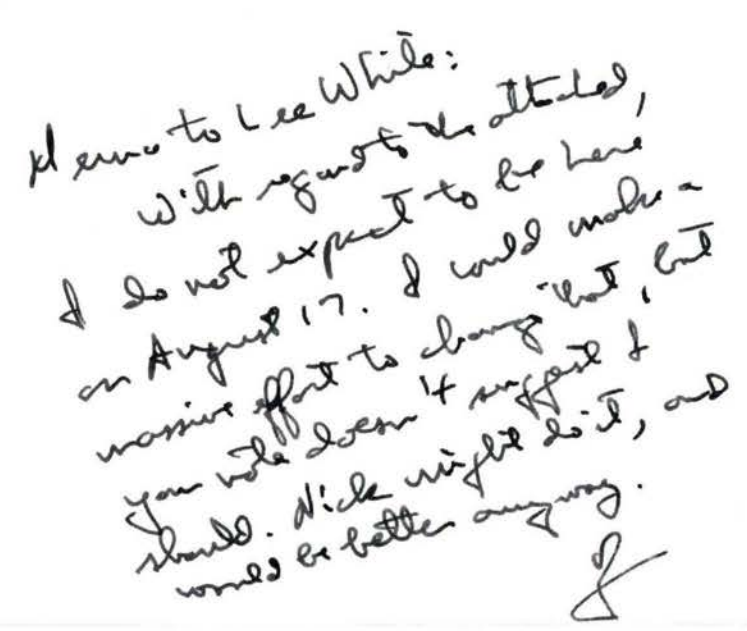 Memo to Lee White:
With regard to the attached,
I do not expect to be here
on August 17. I could make a
massive effort to change that, but
your note doesn't suggest I
should. Nick might do it, and
would be better anyway.